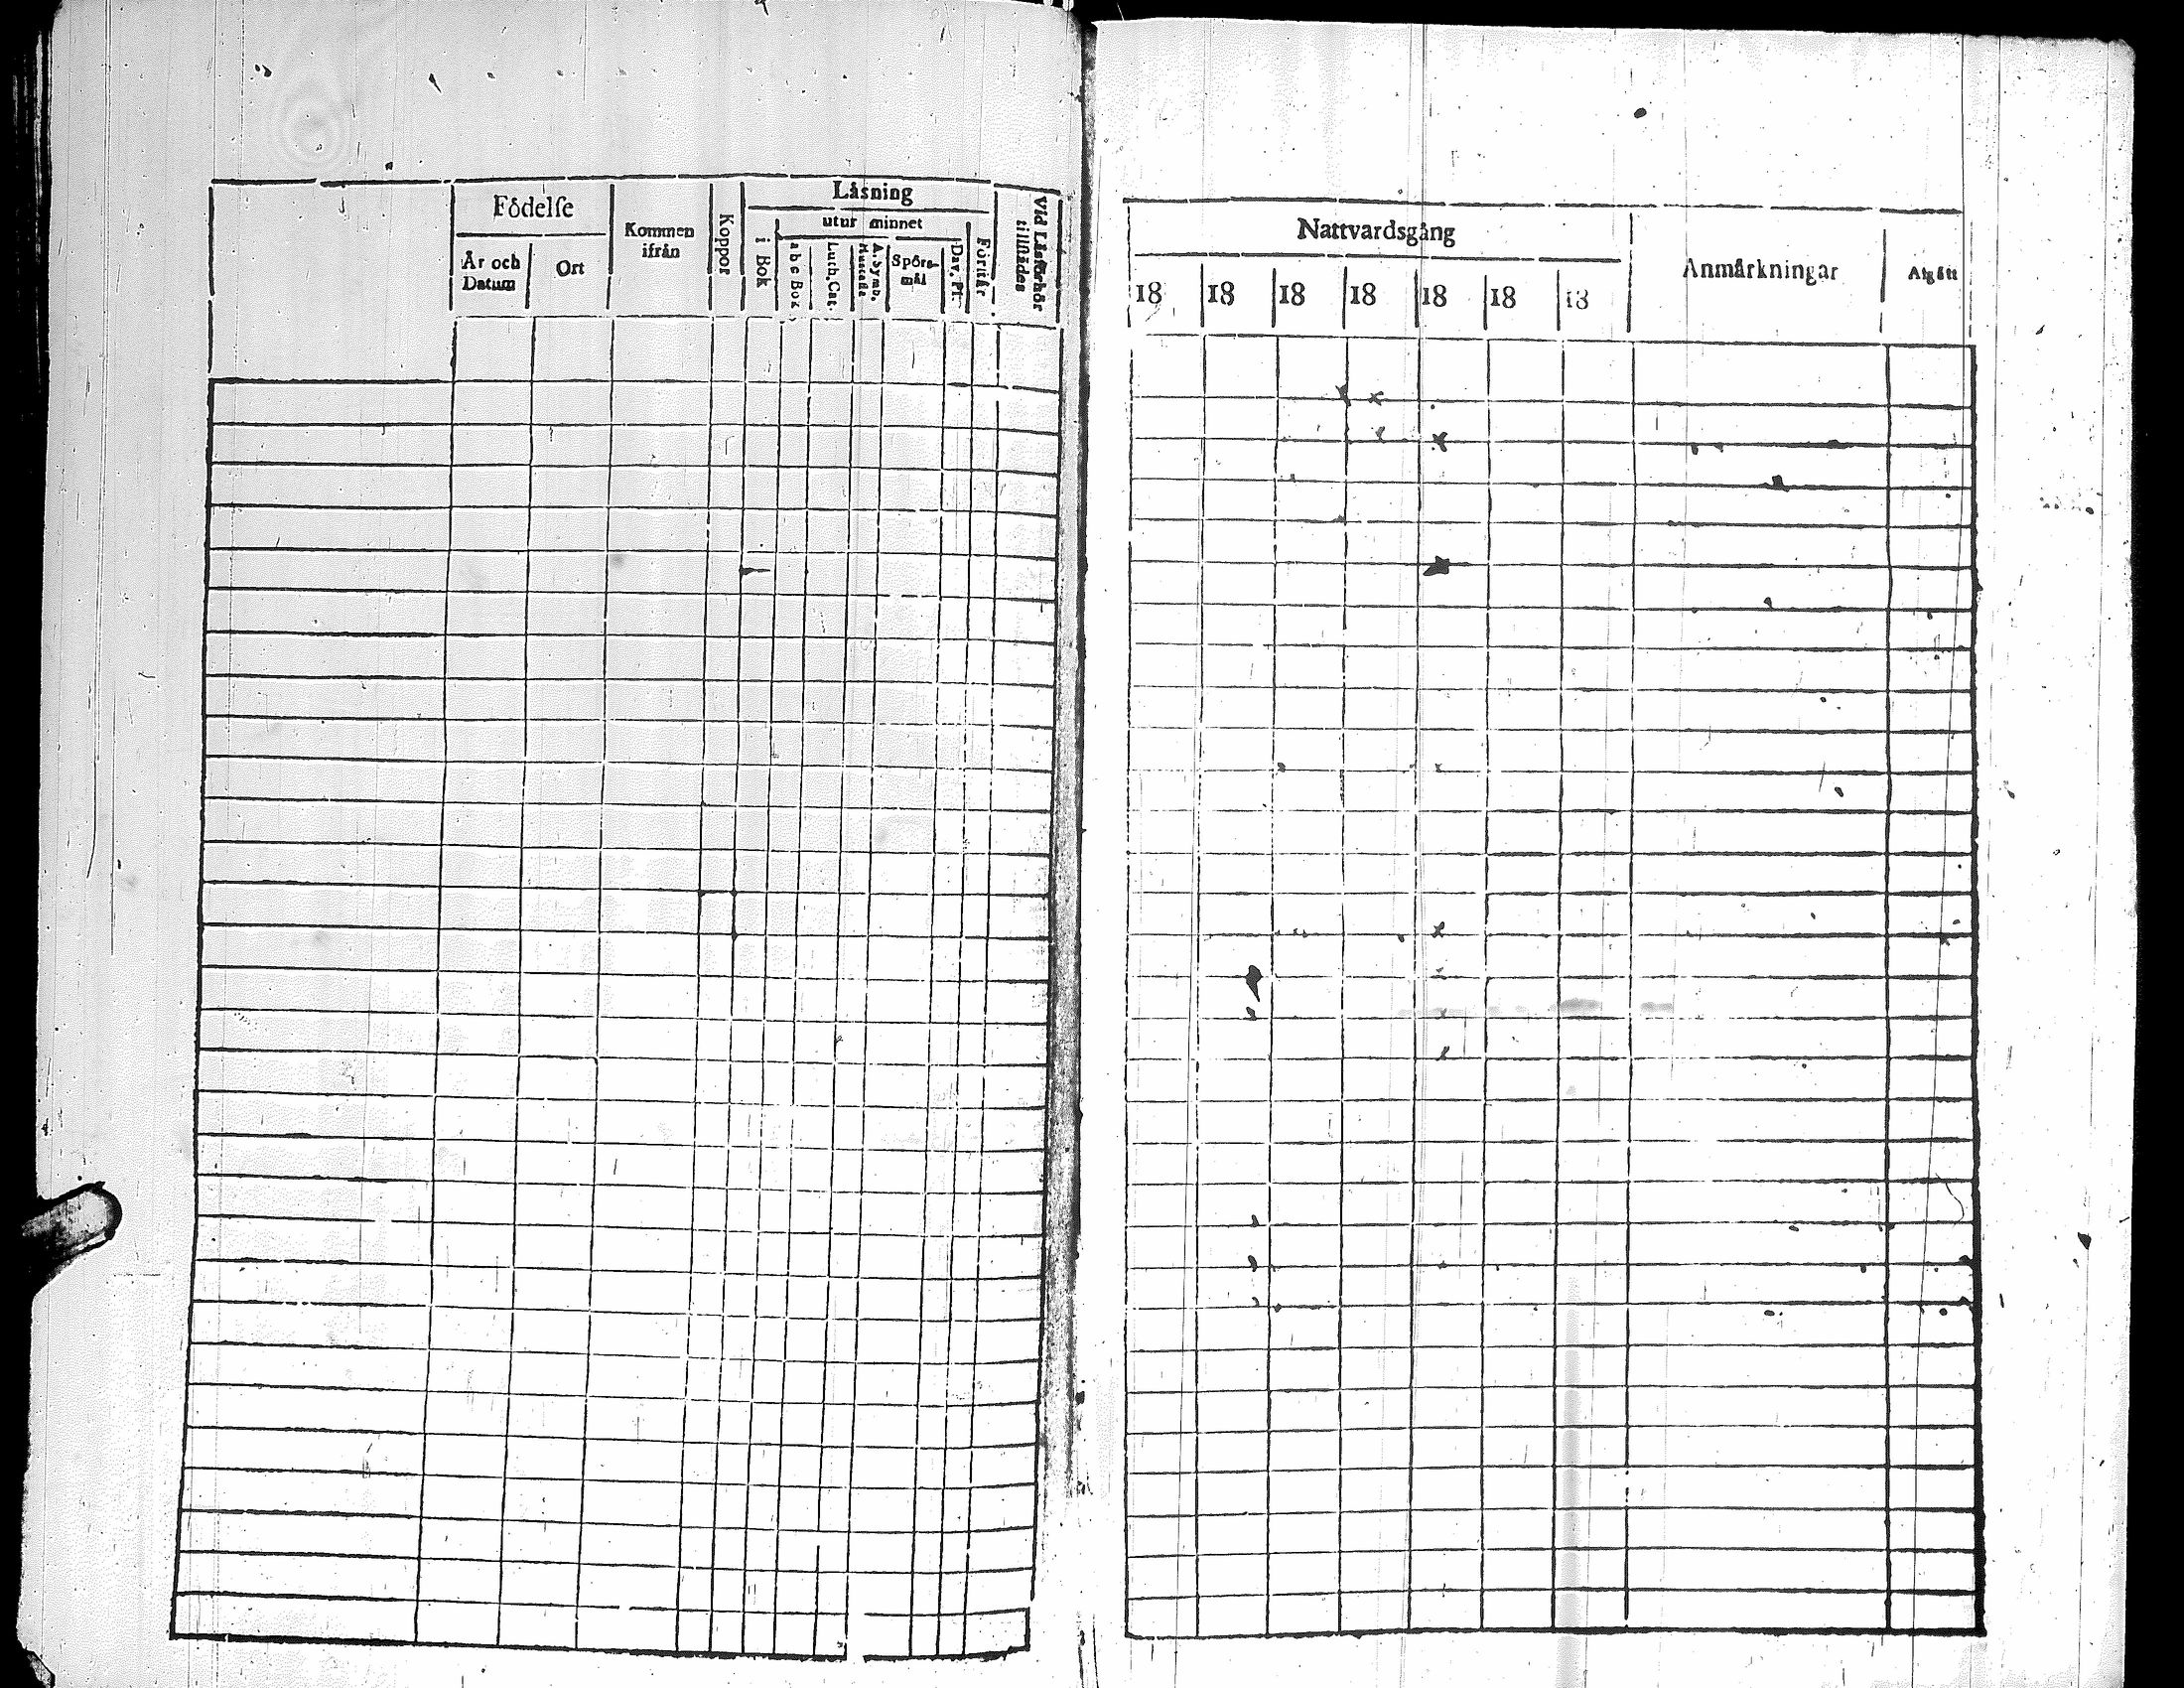 Födelſe
År och Datum
Ort
Kommen ifrån
Koppor
Läsning
i Bok
utur minnet
a b c Bok
Luth. Cat.
A. Symb.
Spörs-mål
Dav. Pſ.
Förſtår
Vid Läsförhör tillſtädes
Nattvardsgång
18 18 18 18 18 18 18
Anmärkningar
Afgått